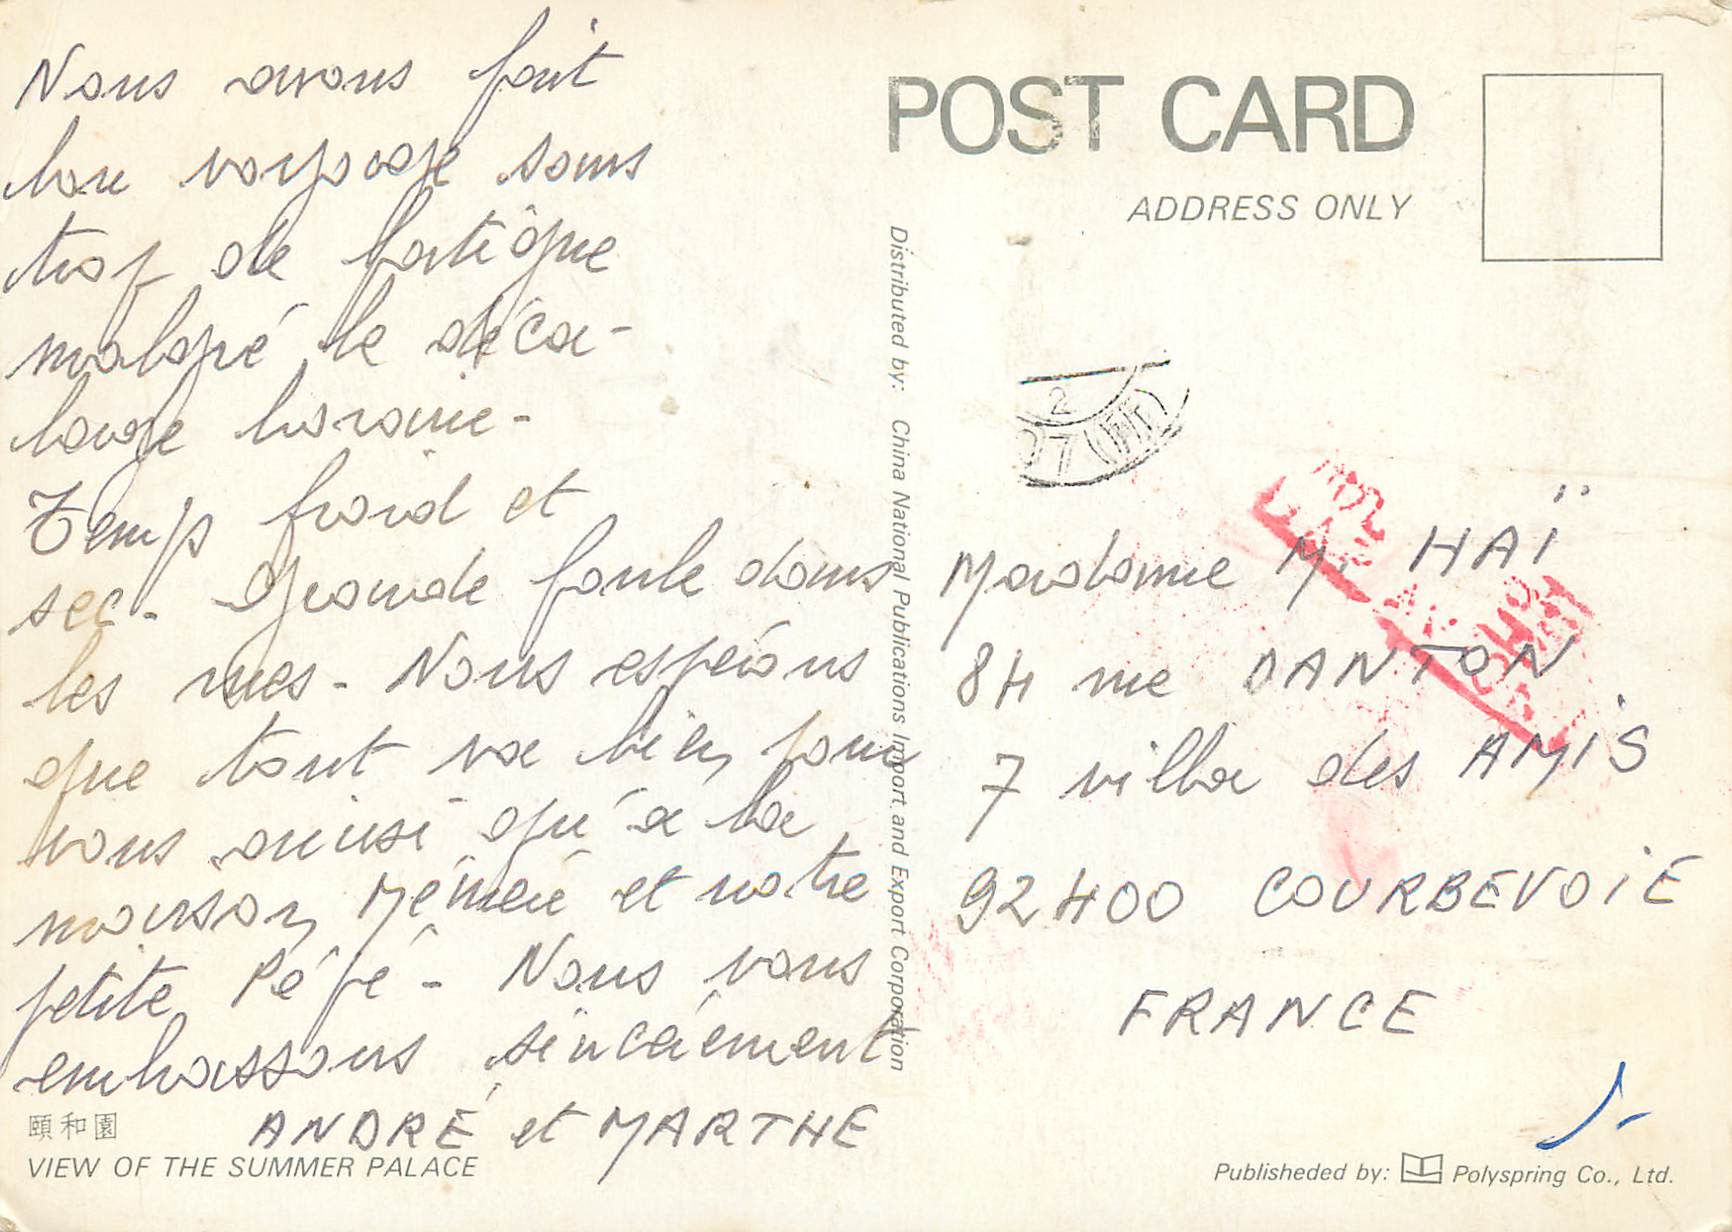 Nous avons fait
bon voyage sans
trop de fatigue
malgré le déca-
lage horaire -
Temps froid et
sec - Grande foule dans
les rues - Nous espérons
que tout va bien pour
vous ainsi qu'à la
maison, Mémère et notre
petite Pépé - Nous vous
embrassons sincèrement
ANDRÉ et MARTHE
頤和園
VIEW OF THE SUMMER PALACE
POST CARD
ADDRESS ONLY
Distributed by: China National Publications Import and Export Corporation
Madame M. HAÏ
84 rue DANTON
7 villa des AMIS
92400 COURBEVOIE
FRANCE
Publisheded by: Polyspring Co., Ltd.